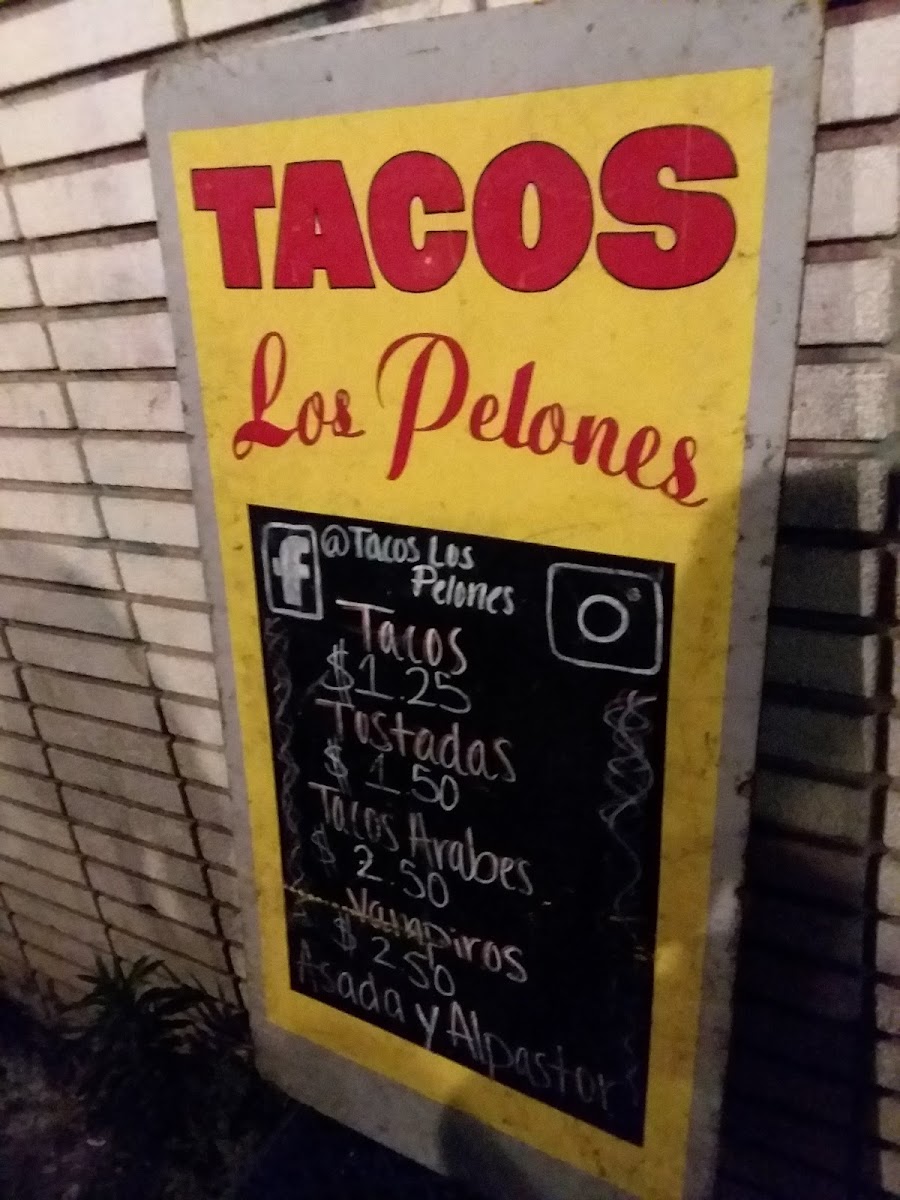 TACOS
Los Pelones
f @Tacos Los
Pelones
Tacos
$1.25
Tostadas
$1.50
Tacos Arabes
$2.50
Vampiros
$2.50
Asada y Alpastor